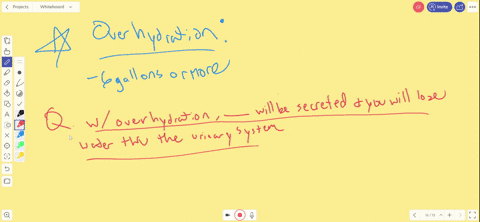 Projects Whiteboard Invite
Overhydration:
- 6 gallons or more
Q w/ overhydration, ___ will be secreted & you will lose
water thru the urinary system